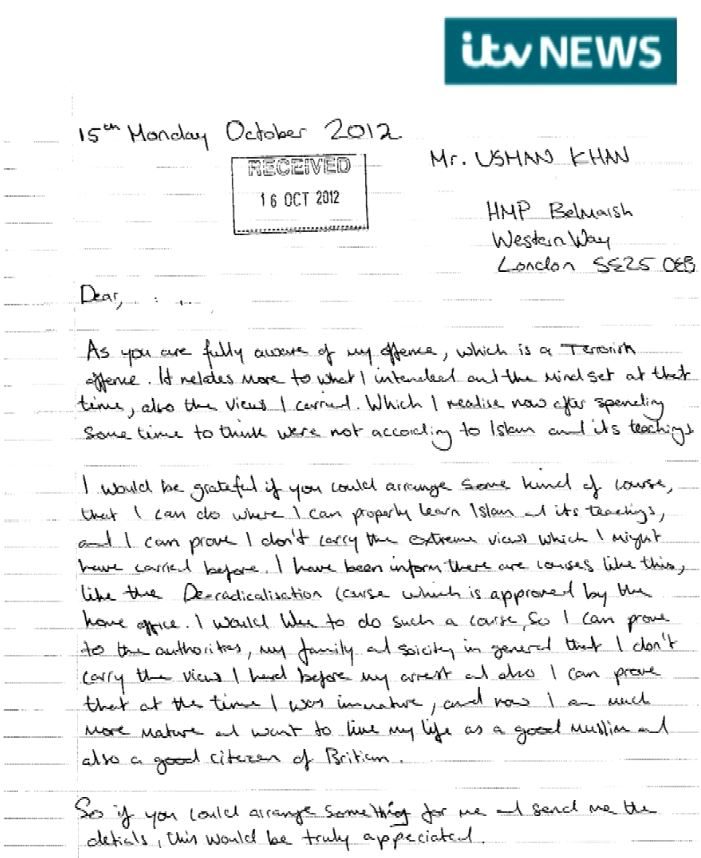 itv NEWS
15th Monday October 2012.
RECEIVED
16 OCT 2012
Mr. USMAN KHAN
HMP Belmarsh
Western Way
London SE25 0EB
Dear,
As you are fully aware of my offence, which is a Terrorish
offence. It relates more to what I intended and the mind set at that
time, also the views I carried. Which I realise now after spending
some time to think were not according to Islam and its teachings
I would be grateful if you could arrange some kind of course,
that I can do where I can properly learn Islam and its teachings,
and I can prove I don't carry the extreme views which I might
have carried before. I have been inform there are courses like this,
like the De-radicalisation course which is approved by the
home office. I would like to do such a course, so I can prove
to the authoritas, my family and soicity in general that I don't
carry the views I had before my arrest and also I can prove
that at the time I was immature, and now I am much
more mature and want to live my life as a good muslim and
also a good citizen of Britian.
So if you could arrange something for me and send me the
detials, this would be truly appeciated.